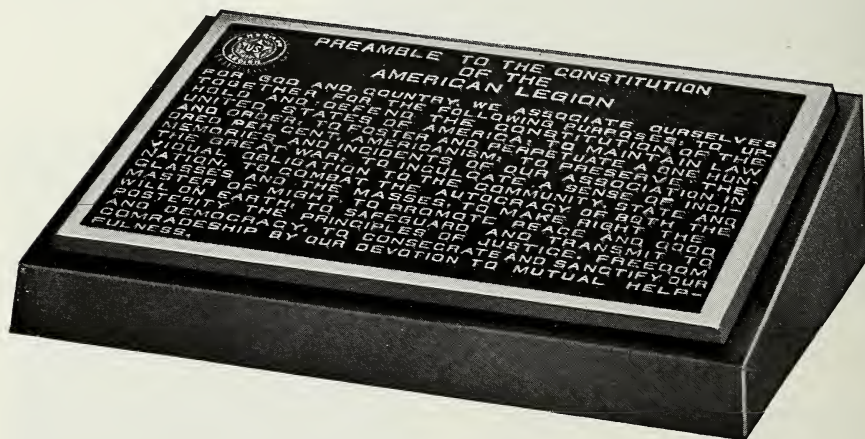 AMERICAN
US
LEGION
PREAMBLE TO THE CONSTITUTION
OF THE
AMERICAN LEGION
FOR GOD AND COUNTRY, WE ASSOCIATE OURSELVES
TOGETHER FOR THE FOLLOWING PURPOSES: TO UP-
HOLD AND DEFEND THE CONSTITUTION OF THE
UNITED STATES OF AMERICA; TO MAINTAIN LAW
AND ORDER; TO FOSTER AND PERPETUATE A ONE HUN-
DRED PER CENT AMERICANISM; TO PRESERVE THE
MEMORIES AND INCIDENTS OF OUR ASSOCIATION IN
THE GREAT WAR; TO INCULCATE A SENSE OF INDI-
VIDUAL OBLIGATION TO THE COMMUNITY, STATE AND
NATION; TO COMBAT THE AUTOCRACY OF BOTH THE
CLASSES AND THE MASSES; TO MAKE RIGHT THE
MASTER OF MIGHT; TO PROMOTE PEACE AND GOOD
WILL ON EARTH; TO SAFEGUARD AND TRANSMIT TO
POSTERITY THE PRINCIPLES OF JUSTICE, FREEDOM
AND DEMOCRACY; TO CONSECRATE AND SANCTIFY OUR
COMRADESHIP BY OUR DEVOTION TO MUTUAL HELP-
FULNESS.